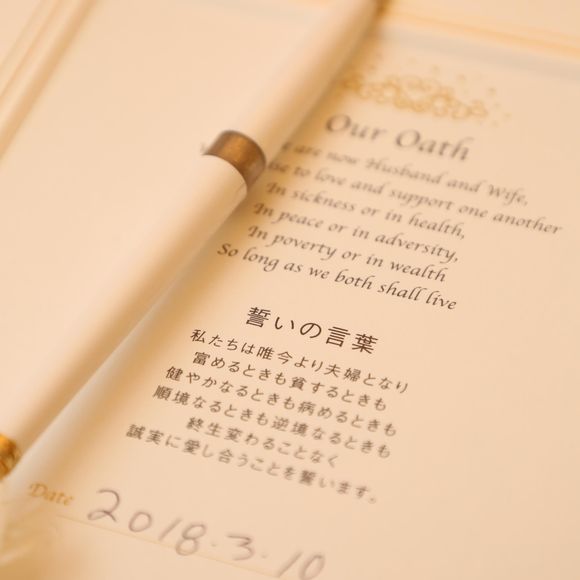 Our Oath
are now Husband and Wife,
to love and support one another
In sickness or in health,
In peace or in adversity,
In poverty or in wealth
So long as we both shall live
誓いの言葉
私たちは唯今より夫婦となり
富めるときも貧するときも
健やかなるときも病めるときも
順境なるときも逆境なるときも
終生変わることなく
誠実に愛し合うことを誓います。
Date 2018.3.10